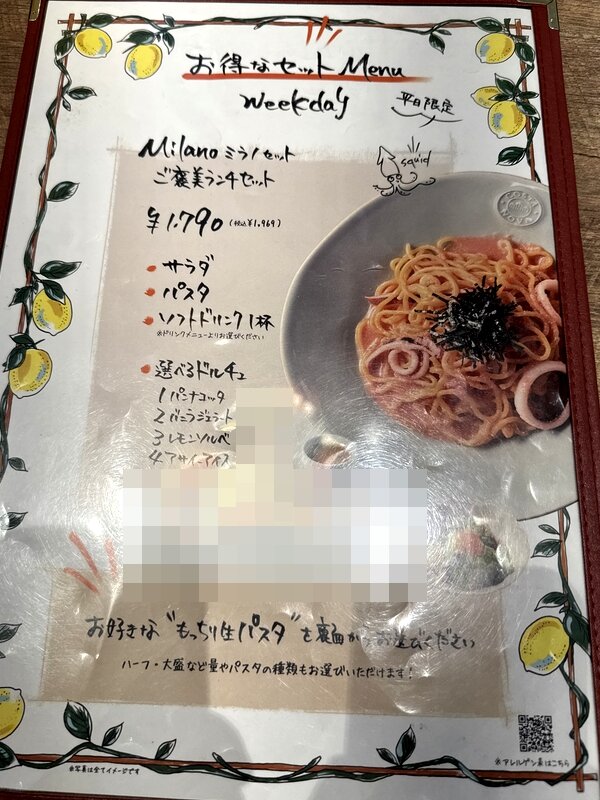 お得なセットMenu
weekday
平日限定
Milano ミラノセット
ご褒美ランチセット
squid
¥1.790 (税込¥1.969)
サラダ
パスタ
ソフトドリンク1杯
※ドリンクメニューよりお選びください
選べるドルチェ
1 パンナコッタ
2 バニラジェラート
3 レモンソルベ
4 アサイーアイス
お好きな"もっちり生パスタ"を裏面からお選びください
ハーフ・大盛など量やパスタの種類もお選びいただけます!
※写真は全てイメージです
※アレルゲン表はこちら